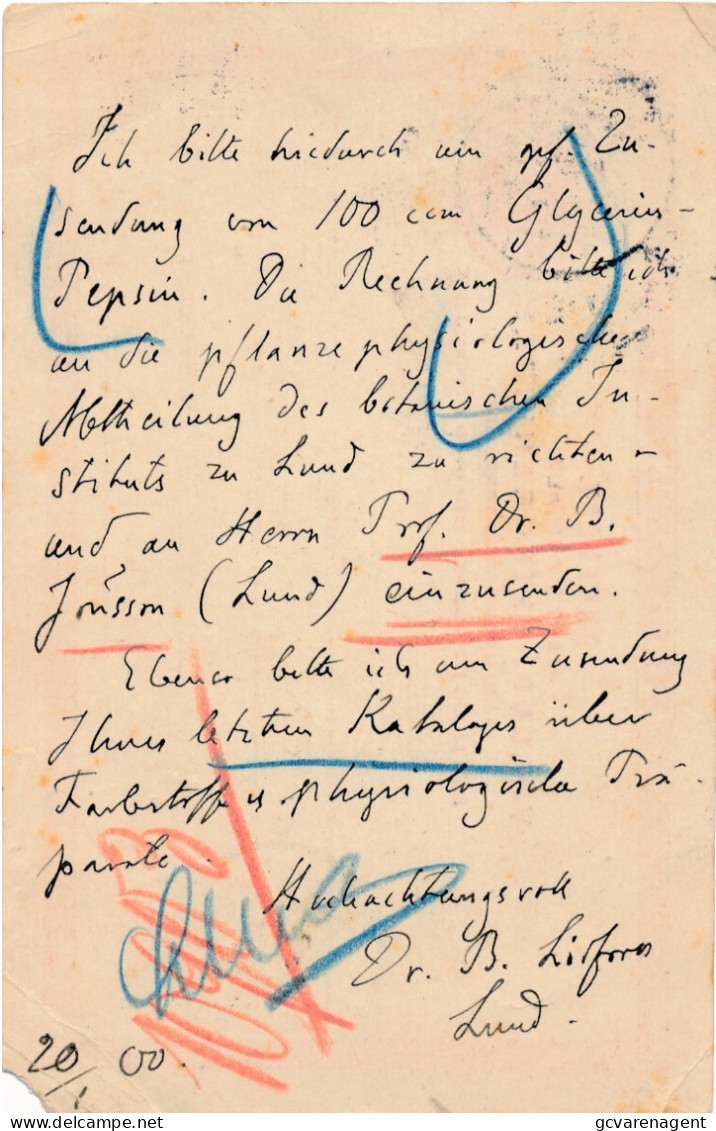 Ich bitte hiedurch um gef. Zu-
sendung von 100 ccm Glycerin-
Pepsin. Die Rechnung bitte ich
an die pflanzephysiologische
Abtheilung des botanischen In-
stituts zu Lund zu richten
und an Herrn Prof. Dr. B.
Jönsson (Lund) einzusenden.
Ebenso bitte ich um Zusendung
Ihres letzten Kataloges über
Farbstoffe & physiologische Prä-
parate.
Hochachtungsvoll
Dr. B. Lidforss
Lund.
20/1 00.
gcvarenagent